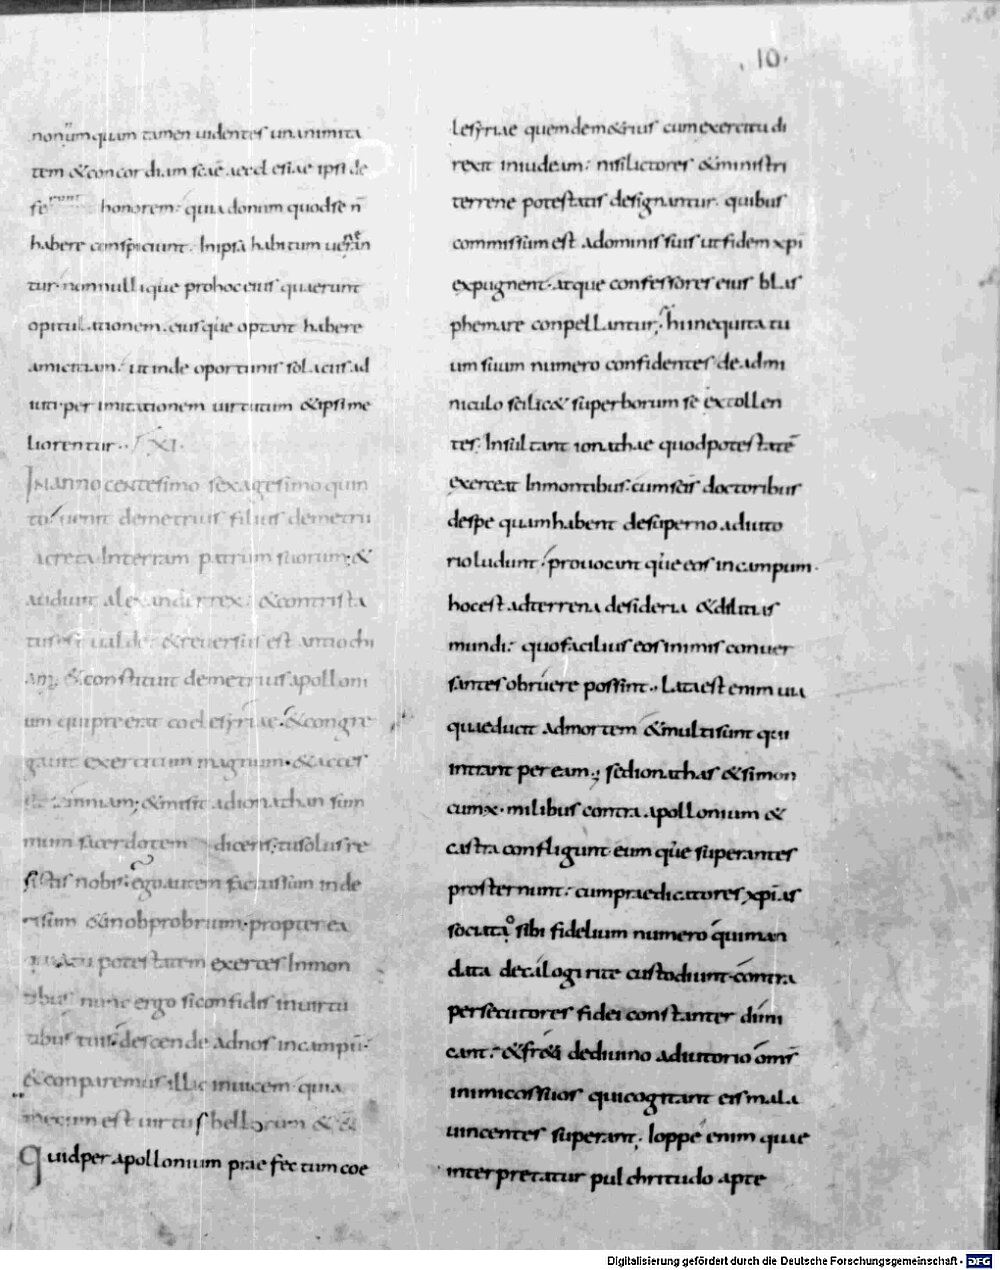 10
nonnumquam tamen uidentes unanimita
tem &concordiam scae aecclesiae ipsi de
ferunt honorem quia donum quod se n̄
habere conspiciunt. In ipsa habitum uenerān
tur. nonnullique pro hoc eius quaerunt
opitulationem. eiusque optant habere
amicitiam. ut inde oportunis solaciis ad
iuti. per imitationem uirtutum &ipsi me
liorentur. XI.
In anno centesimo sexagesimo quin
to. uenit demetrius filius demetrii
a creta In terram patrum suorum. &
audiunt alexander rex. &contrista
tus est ualde. &reuersus est antiochi
am. &constituit demetrius apolloni
um qui preerat coelesyriae. &congre
gauit exercitum magnum. &acces
iamniam. &misit ad ionathan sum
mum sacerdotem dicens. tu solus re
sistis nobis. ego autem factus sum in de
risum &in obprobrium. propterea
quia tu potestatem exerces In mon
tibus nunc ergo si confidis in uirtu
tibus tuis. descende ad nos in campū.
&conparemus illic inuicem quia
mecum est uirtus bellorum &
Quid per apollonium praefectum coe
lesyriae quem dem&rius cum exercitu di
rexit in iudeam. nisi lictores &ministri
terrene potestatis designantur. quibus
commissum est a dominis suis ut fidem xpi
expugnent. atque confessores eius blas
phemare conpellantur. hi in equitatu
um suum numero confidentes de admi
niculo scilic& superborum se extollen
tes. Insultant ionathae quod potestatē
exerceat In montibus. cum scis doctoribus
de spe quam habent de superno adiuto
rio ludunt. prouocant que eos in campum.
hoc est ad terrena desideria &dilitias
mundi. quo facilius eos in imis conuer
santes obruere possint. Lata est enim uia
quae ducit ad mortem &multi sunt qui
intrant per eam. sed ionathas &simon
cum x. milibus contra apollonium &
castra confligunt eum que superantes
prosternunt. cum praedicatores xpi as
sociata sibi fidelium numero qui man
data decalogi rite custodiunt. contra
persecutores fidei constanter dimi
cant. &fr&i de diuino adiutorio om̄s
inimicos suos qui cogitant eis mala
uincentes superant. Ioppe enim quae
interpretatur pulchritudo apte
Digitalisierung gefördert durch die Deutsche Forschungsgemeinschaft - DFG